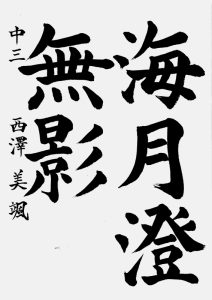 海月澄
無影
中三 西澤美颯